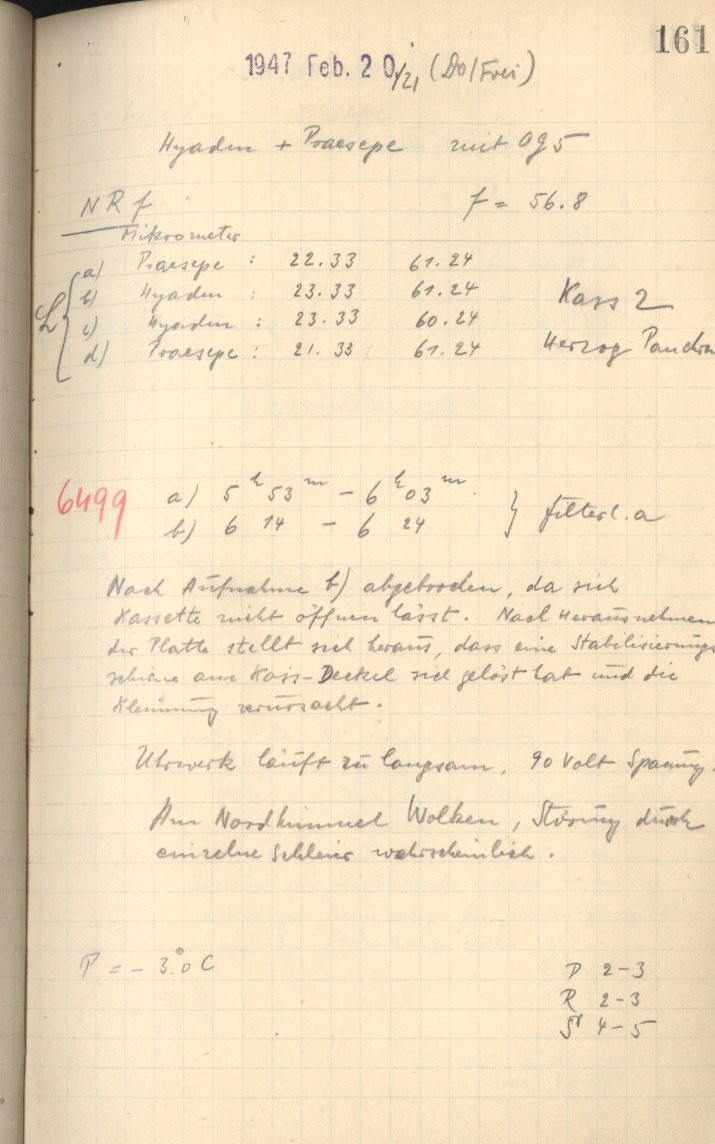 161
1947 Feb. 20/21 (Do/Frei)
Hyaden + Praesepe mit Og5
NRf f = 56.8
Mikrometer
a) Praesepe : 22.33 61.24
b) Hyaden : 23.33 61.24 Kass 2
L c) Hyaden : 23.33 60.24
d) Praesepe : 21.33 61.24 Herzog Panchro
6499 a) 5h 53m – 6h 03m
b) 6 14 – 6 24 } filter l. a
Nach Aufnahme b) abgebrochen, da sich
Kassette nicht öffnen lässt. Nach Herausnehmen
der Platte stellt sich heraus, dass eine Stabilisierungs
schiene am Kass-Deckel sich gelöst hat und die
Klemmung verursacht.
Uhrwerk läuft zu langsam, 90 Volt Spannung.
Am Nordhimmel Wolken, Störung durch
einzelne Schleier wahrscheinlich.
T = – 3.°0 C
D 2–3
R 2–3
4–5